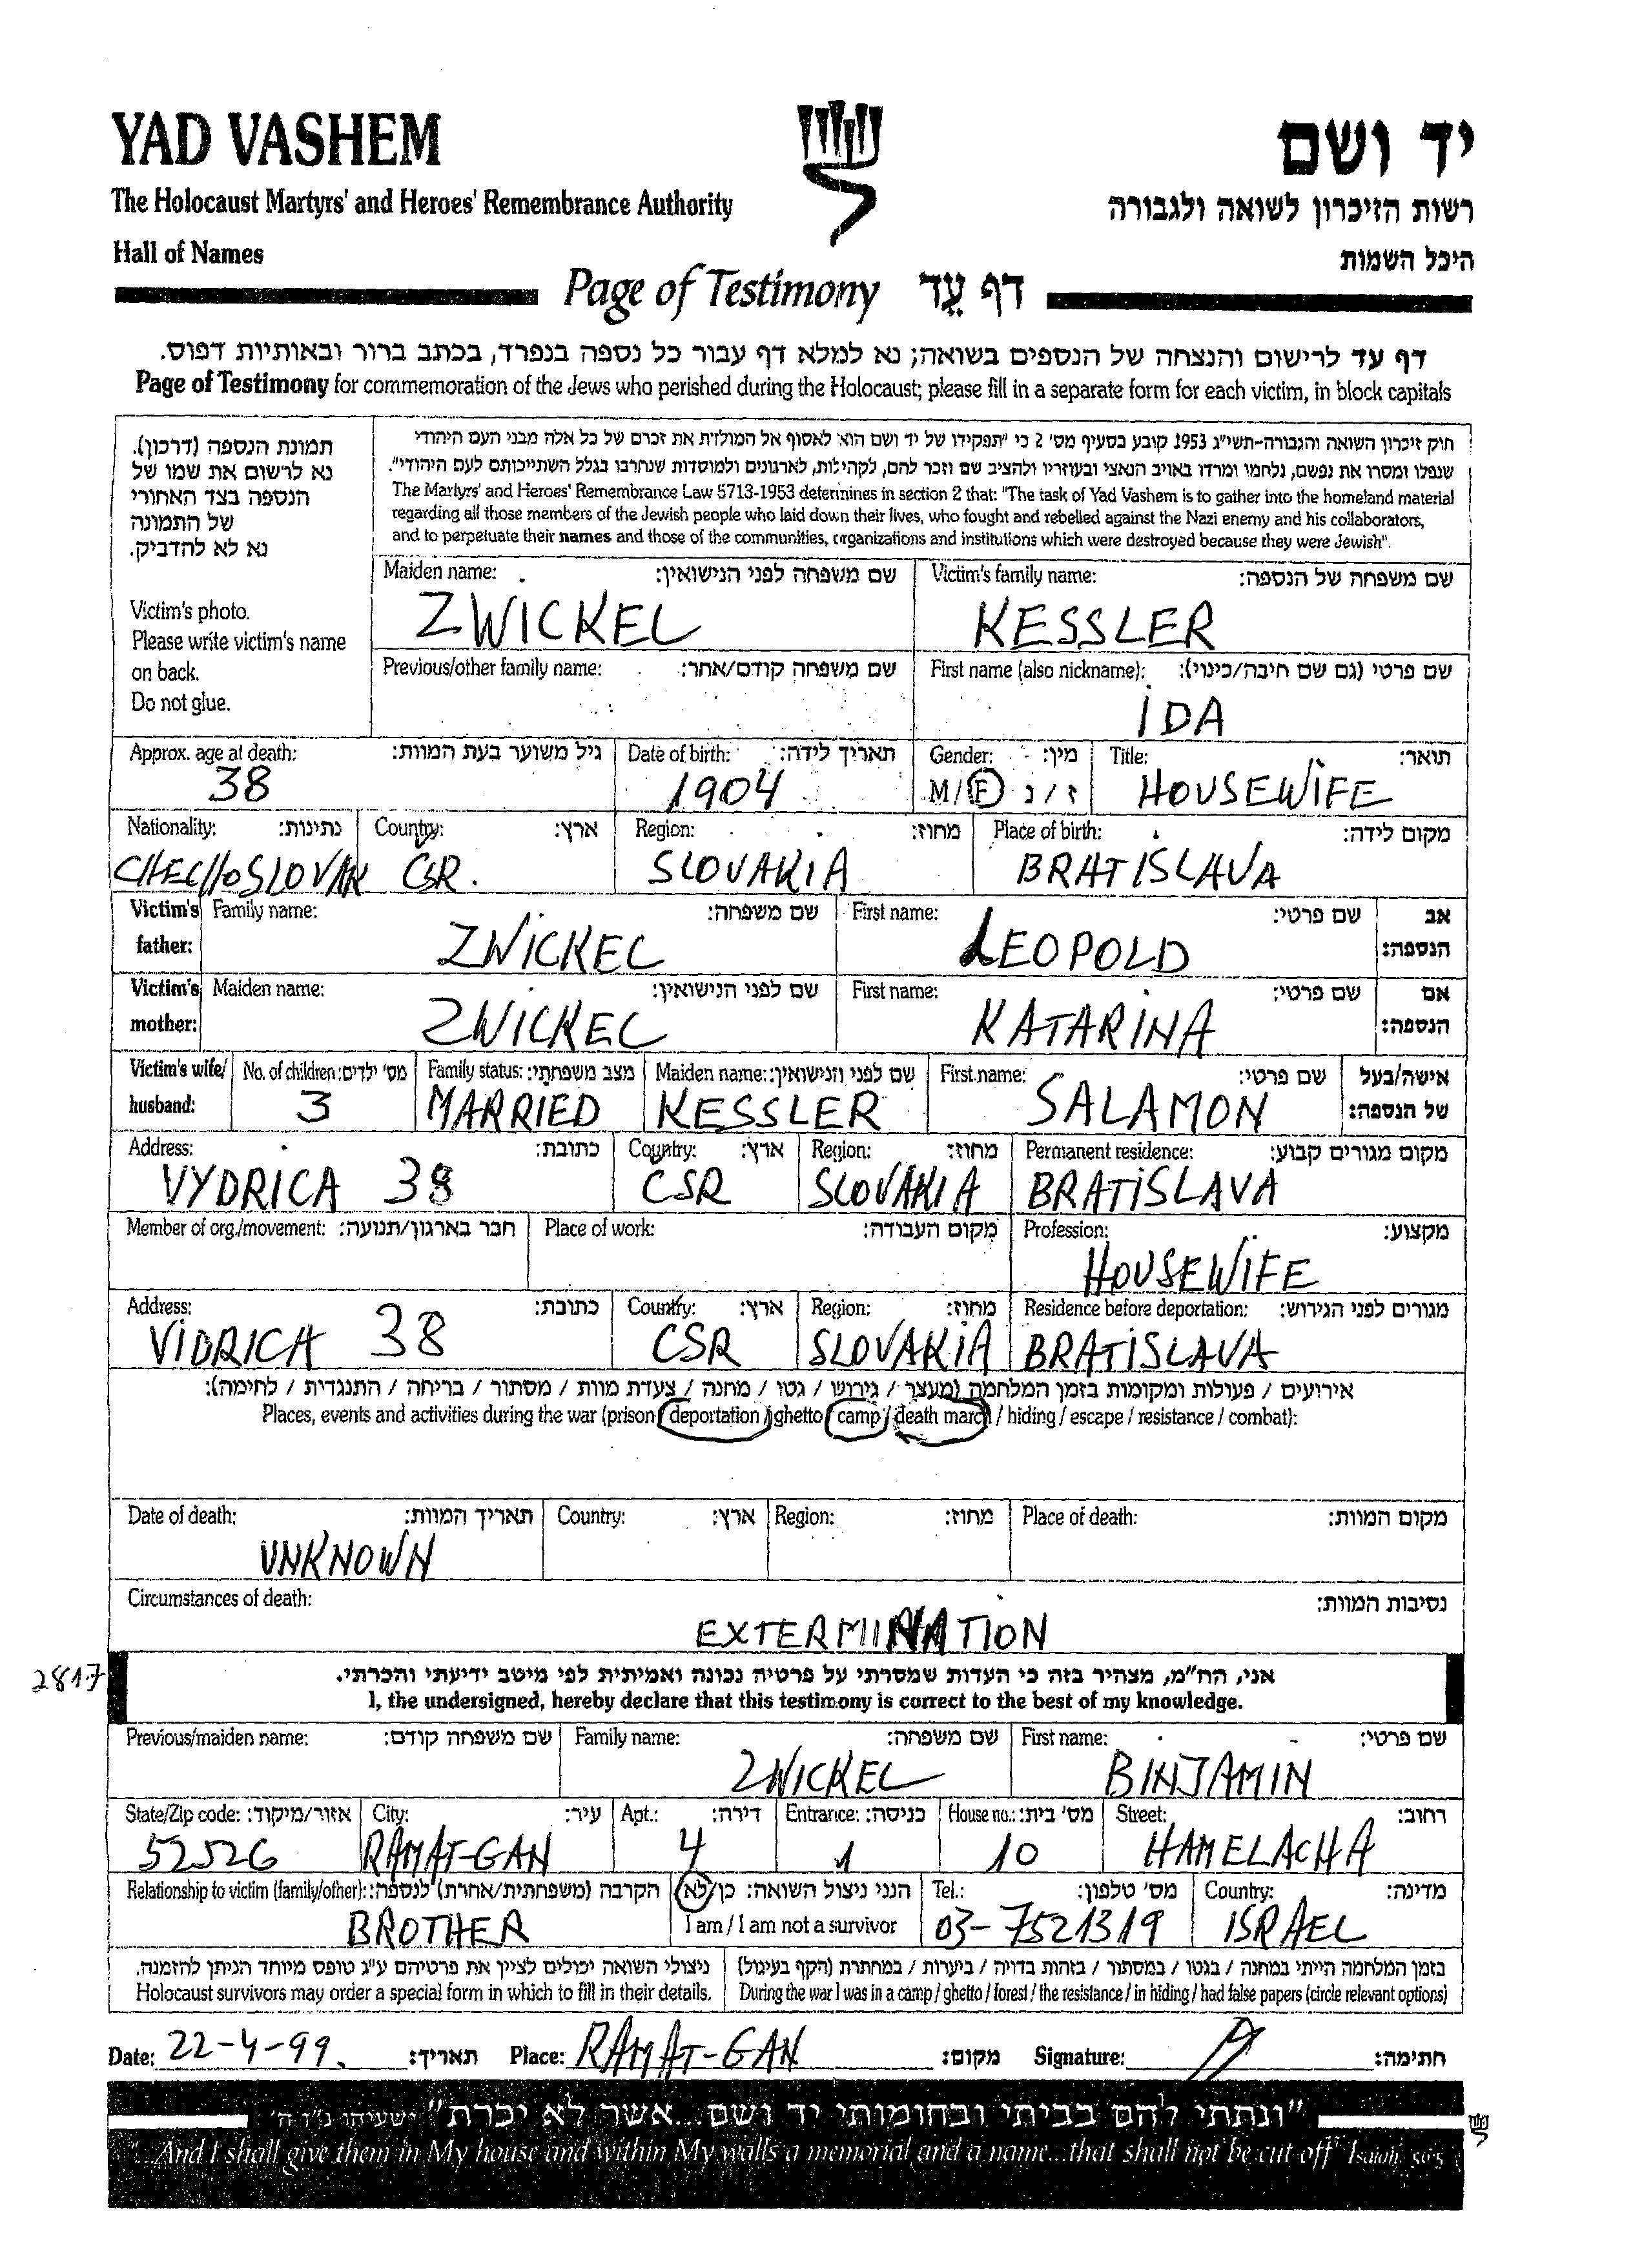 YAD VASHEM
יד ושם
The Holocaust Martyrs' and Heroes' Remembrance Authority
רשות הזיכרון לשואה ולגבורה
Hall of Names
היכל השמות
Page of Testimony דף עֵד
דף עד לרישום והנצחה של הנספים בשואה; נא למלא דף עבור כל נספה בנפרד, בכתב ברור ובאותיות דפוס.
Page of Testimony for commemoration of the Jews who perished during the Holocaust; please fill in a separate form for each victim, in block capitals
תמונת הנספה (דרכון).
נא לרשום את שמו של
הנספה בצד האחורי
של התמונה
נא לא להדביק.
Victim's photo.
Please write victim's name
on back.
Do not glue.
חוק זיכרון השואה והגבורה-תשי"ג 1953 קובע בסעיף מס' 2 כי "תפקידו של יד ושם הוא לאסוף אל המולדת את זכרם של כל אלה מבני העם היהודי
שנפלו ומסרו את נפשם, נלחמו ומרדו באויב הנאצי ובעוזריו ולהציב שם וזכר להם, לקהילות, לארגונים ולמוסדות שנחרבו בגלל השתייכותם לעם היהודי".
The Martyrs' and Heroes' Remembrance Law 5713-1953 determines in section 2 that: "The task of Yad Vashem is to gather into the homeland material
regarding all those members of the Jewish people who laid down their lives, who fought and rebelled against the Nazi enemy and his collaborators,
and to perpetuate their names and those of the communities, organizations and institutions which were destroyed because they were Jewish".
Maiden name: שם משפחה לפני הנישואין: Victim's family name: שם משפחה של הנספה:
ZWICKEL KESSLER
Previous/other family name: שם משפחה קודם/אחר: First name (also nickname): שם פרטי (גם שם חיבה/כינוי):
IDA
Approx. age at death: גיל משוער בעת המוות: Date of birth: תאריך לידה: Gender: מין: Title: תואר:
38 1904 M/F ז/נ HOUSEWIFE
Nationality: נתינות: Country: ארץ: Region: מחוז: Place of birth: מקום לידה:
CHECHOSLOVAK CSR. SLOVAKIA BRATISLAVA
Victim's Family name: שם משפחה: First name: שם פרטי: אב
father: ZWICKEL LEOPOLD הנספה:
Victim's Maiden name: שם לפני הנישואין: First name: שם פרטי: אם
mother: ZWICKEL KATARINA הנספה:
Victim's wife/ No. of children: מס' ילדים: Family status: מצב משפחתי: Maiden name: שם לפני הנישואין: First name: שם פרטי: אישה/בעל
husband: 3 MARRIED KESSLER SALAMON של הנספה:
Address: כתובת: Country: ארץ: Region: מחוז: Permanent residence: מקום מגורים קבוע:
VYDRICA 38 CSR SLOVAKIA BRATISLAVA
Member of org./movement: חבר בארגון/תנועה: Place of work: מקום העבודה: Profession: מקצוע:
HOUSEWIFE
Address: כתובת: Country: ארץ: Region: מחוז: Residence before deportation: מגורים לפני הגירוש:
VIDRICA 38 CSR SLOVAKIA BRATISLAVA
אירועים / פעולות ומקומות בזמן המלחמה (מעצר / גירוש / גטו / מחנה / צעדת מוות / מסתור / בריחה / התנגדות / לחימה):
Places, events and activities during the war (prison / deportation / ghetto / camp / death march / hiding / escape / resistance / combat):
Date of death: תאריך המוות: Country: ארץ: Region: מחוז: Place of death: מקום המוות:
UNKNOWN
Circumstances of death: נסיבות המוות:
EXTERMINATION
2817
אני, הח"מ, מצהיר בזה כי העדות שמסרתי על פרטיה נכונה ואמיתית לפי מיטב ידיעתי והכרתי.
I, the undersigned, hereby declare that this testimony is correct to the best of my knowledge.
Previous/maiden name: שם משפחה קודם: Family name: שם משפחה: First name: שם פרטי:
ZWICKEL BINJAMIN
State/Zip code: אזור/מיקוד: City: עיר: Apt.: דירה: Entrance: כניסה: House no.: מס' בית: Street: רחוב:
52526 RAMAT-GAN 4 1 10 HAMELACHA
Relationship to victim (family/other): הקרבה (משפחתית/אחרת) לנספה: הנני ניצול השואה: כן/לא Tel.: מס' טלפון: Country: מדינה:
BROTHER I am / I am not a survivor 03-7521319 ISRAEL
ניצולי השואה יכולים לציין את פרטיהם ע"ג טופס מיוחד הניתן להזמנה. בזמן המלחמה הייתי במחנה / בגטו / במסתור / בזהות בדויה / ביערות / במחתרת (הקף בעיגול)
Holocaust survivors may order a special form in which to fill in their details. During the war I was in a camp / ghetto / forest / the resistance / in hiding / had false papers (circle relevant options)
Date: 22-4-99. תאריך: Place: RAMAT-GAN מקום: Signature: חתימה:
"ונתתי להם בביתי ובחומותי יד ושם...אשר לא יכרת" ישעיהו נ"ו ה'
"...And I shall give them in My house and within My walls a memorial and a name...that shall not be cut off" Isaiah, 56:5